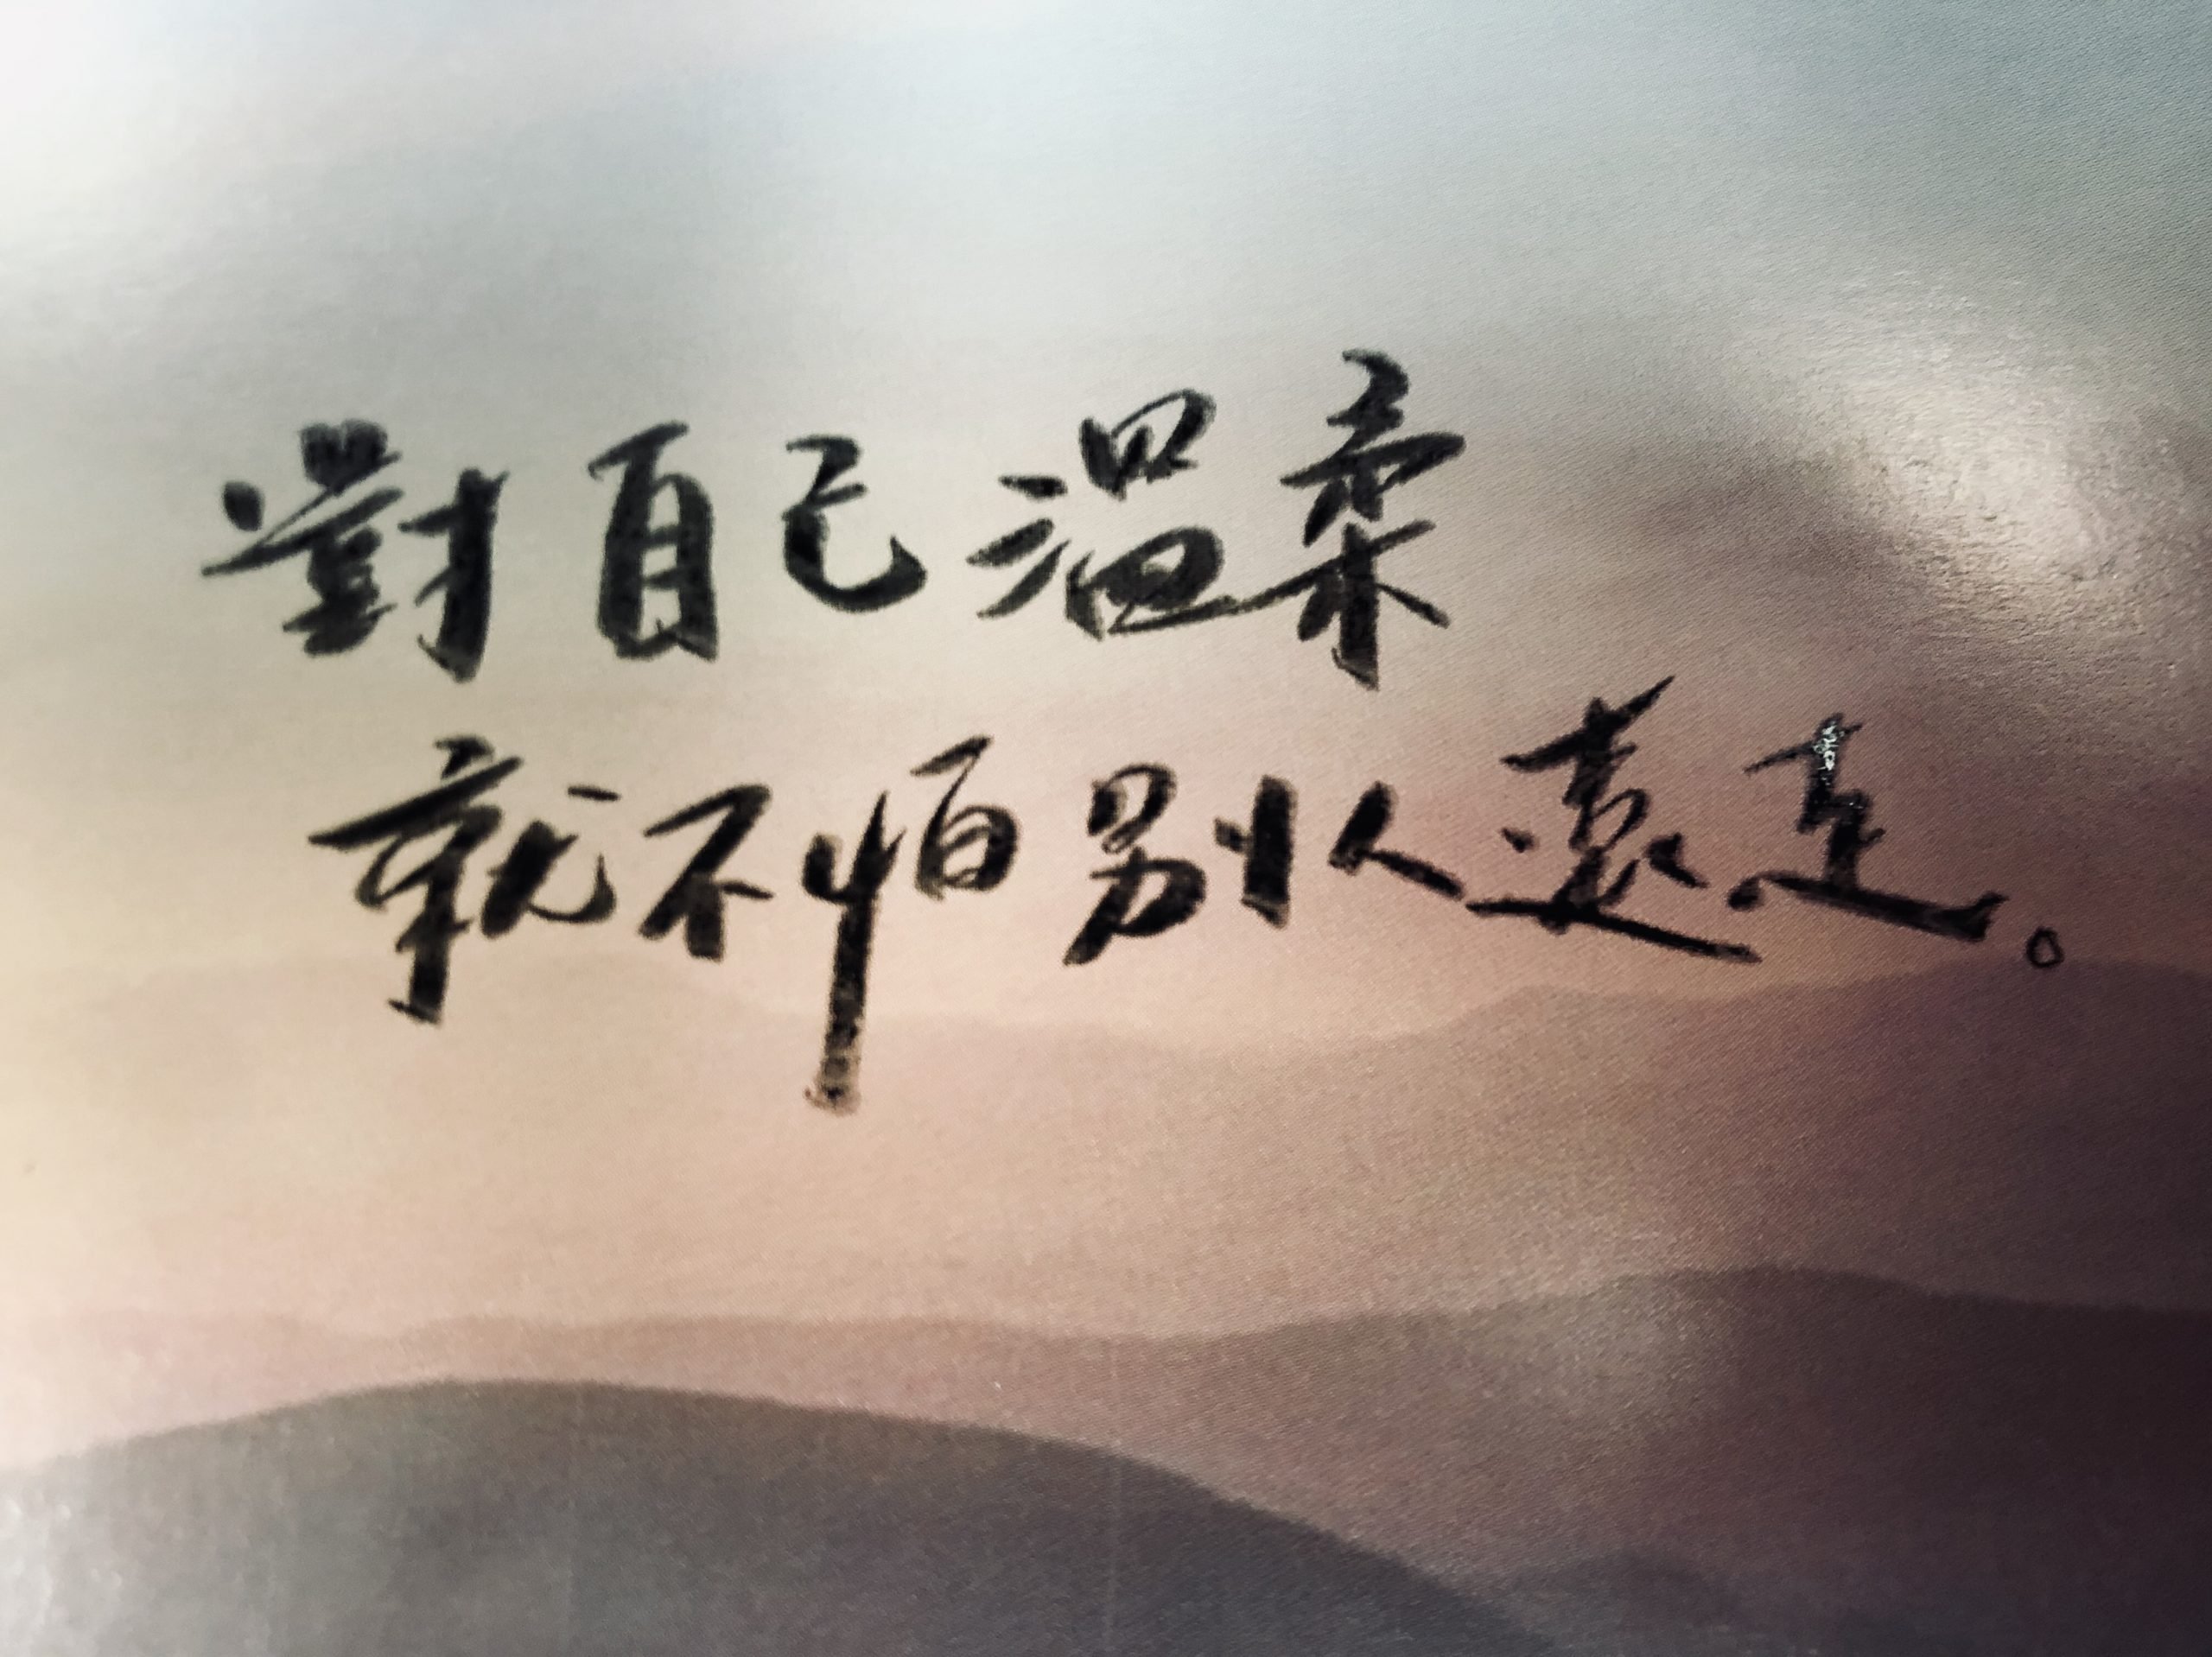 對自己溫柔
就不怕別人遠走。